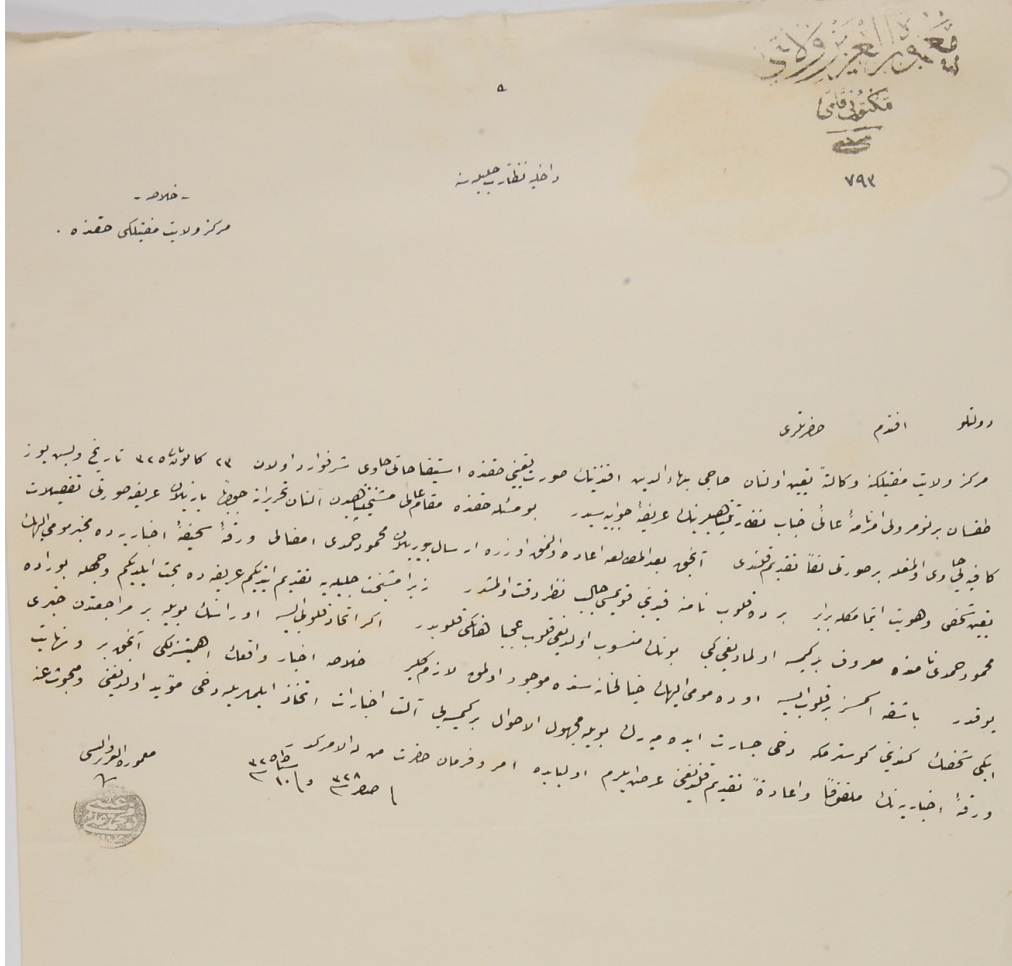 معمورة العزيز ولايتى
مكتوبى قلمى
٧٩٣
داخليه نظارت جليله سنه
- خلاصه -
مركز ولايت مفتيلكى حقنده .
دولتلو افندم حضرتلرى
مركز ولايت مفتيلكنه وكالةً تعيين اولنان حاجى بهاء الدين افندينك صورت تعيينى حقنده استيضاحاتى حاوى شرفوارد اولان ٢٣ كانون ثانى ٣٢٥ تاريخ و بيس يوز
طقسان بر نومرولى امرنامهٔ عالئ جناب نظارتپناهيلرينك عريضهٔ جوابيه سيدر بو مسئله حقنده مقام عالئ مشيختپناهيدن آلنان تحريراته جواباً يازيلان عريضه صورتى تفصيلات
كافيه يى حاوى اولمغله بر صورتى لفاً تقديم قلندى آنجق بعد المطالعه اعاده اولنمق اوزره ارسال بيوريلان محمود حمدى امضالى ورقهٔ سخيفهٔ اخباريه ده مخبر مومى اليهك
تعيين شخص و هويت ايتمامكله برابر بر ده قلوب نامنه قيدى قويمسى جالب نظر دقت اولمشدر زيرا مشيخت جليله يه تقديم ايتديكم عريضه ده بحث ايلديكم وجهله بوراده
محمود حمدى نامنده معروف بر كيمسه اولمديغى كبى بونك منسوب اولديغى قلوب عجبا هانكى قلوبدر اكر اتحاد قلوبى ايسه اورانك بويله بر مراجعتدن خبرى
يوقدر باشقه اسمسز بر قلوب ايسه او ده مومى اليهك خيالخانه سنده موجود اولمق لازم كلير خلاصه اخبار واقعك اهميتسزلكى آنجق بر و نهايت
ايكى شخصك كندينى كوسترمكه دخى جسارت ايده ميه رك بويله مجهول الاحوال بر كيمسه يى آلت اخبارات اتخاذ ايلملريله دخى مؤيد اولديغنى و مبحوث عنه
ورقهٔ اخباريه نك ملفوفاً و اعادةً تقديم قلنديغنى عرض ايلرم اولبابده امر و فرمان حضرت من له الامركدر
فى ١٠ صفر ٣٢٨ و فى شباط ٣٢٥
معمورة العزيز واليسى